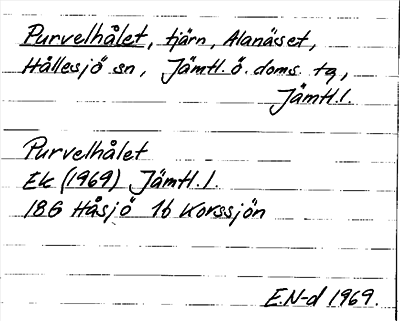 Purvelhålet, tjärn, Alanäset,
Hållesjö sn, Jämtl. ö. doms. tg,
Jämtl. l.
Purvelhålet
Ek (1969) Jämtl. l.
18G Håsjö 1b Korssjön
E.N-d 1969.